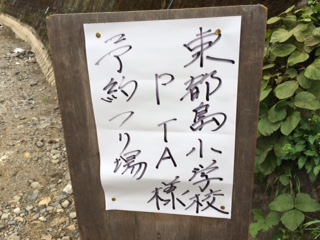 東都島小学校
PTA様
予約つり場